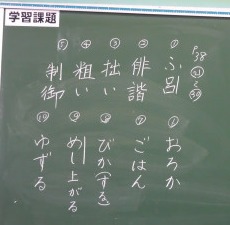 学習課題
P38
㉛〜㊵
① ふ呂
② 俳諧
③ 拙い
④ 粗い
⑤ 制御
⑥ おろか
⑦ ごはん
⑧ びか(する)
⑨ めし上がる
⑩ ゆずる